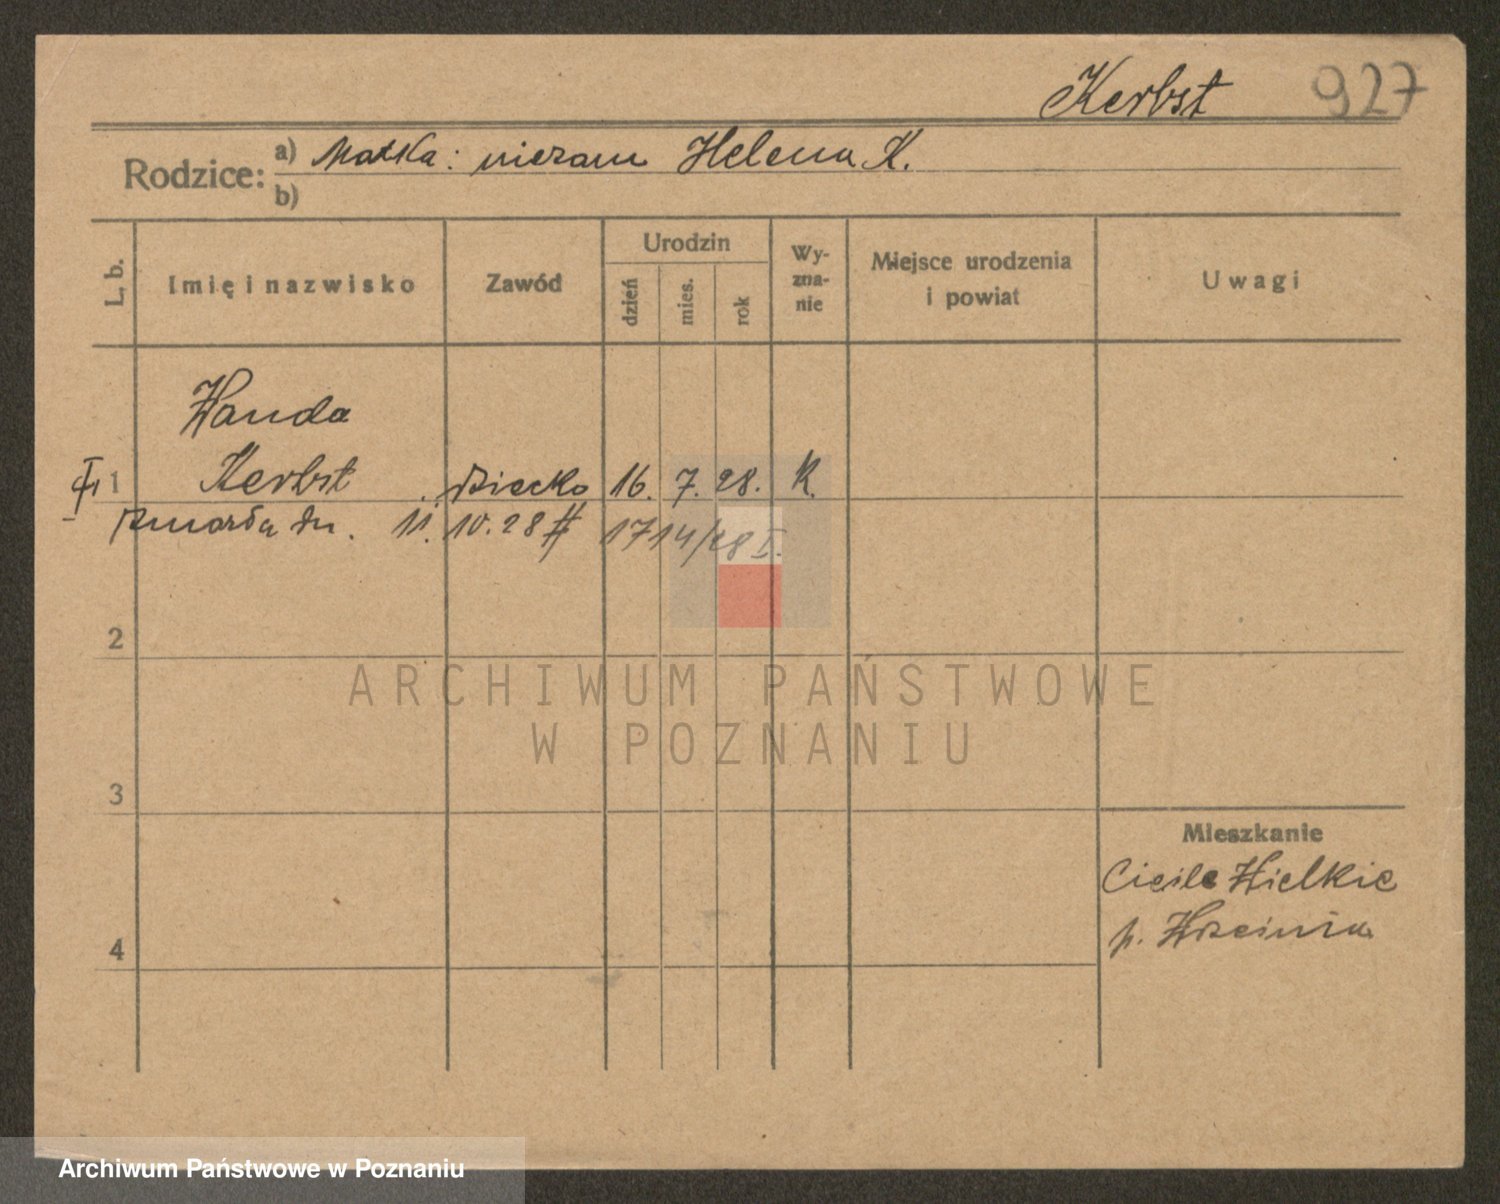 Kerbst 927
Rodzice: a) Matka: niezam Helena K.
b)
L. b. Imię i nazwisko Zawód Urodzin dzień mies. rok Wy-zna-nie Miejsce urodzenia i powiat Uwagi
Wanda
1 Kerbst dziecko 16. 7. 28. K.
zmarła dn. 11. 10. 28 # 1714/28 I.
2
ARCHIWUM PAŃSTWOWE
W POZNANIU
3
Mieszkanie
Cieśle Wielkie
4 p. Września
Archiwum Państwowe w Poznaniu